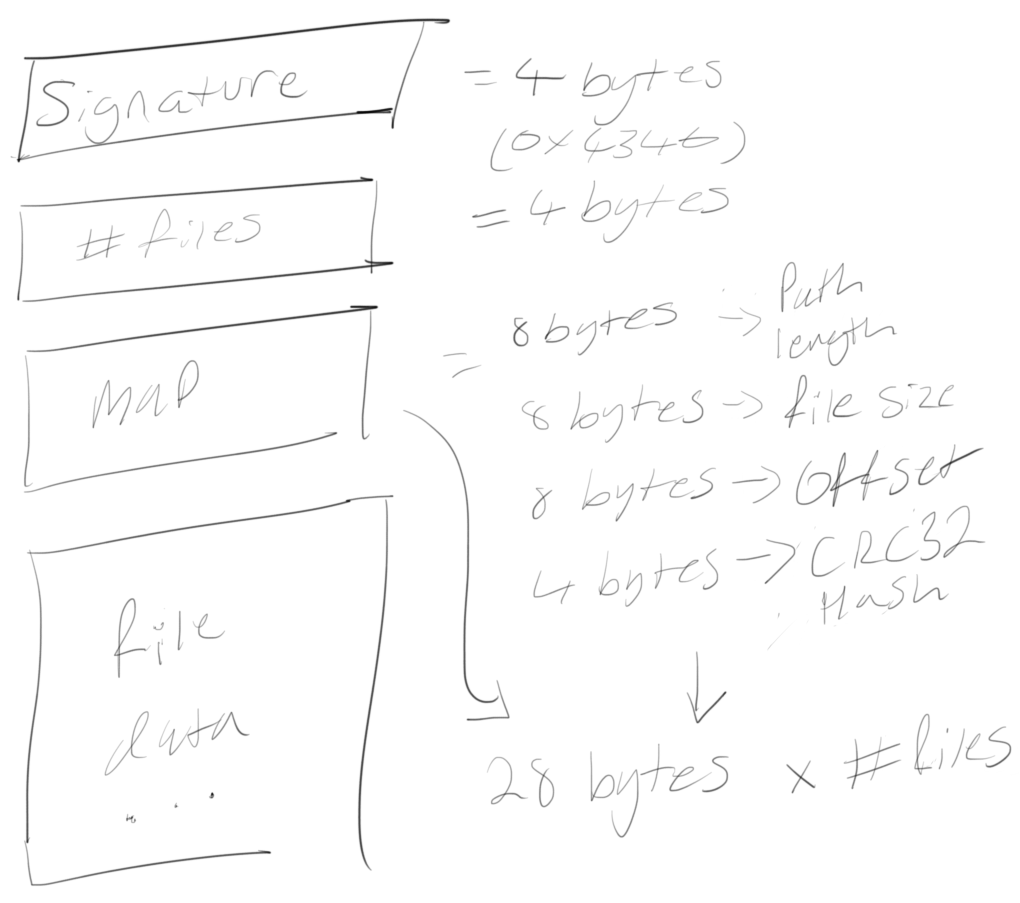 Signature = 4 bytes
(0x4346)
# files = 4 bytes
map = 8 bytes -> Path length
8 bytes -> file size
8 bytes -> Offset
4 bytes -> CRC32 Hash
28 bytes x # files
file
data
...